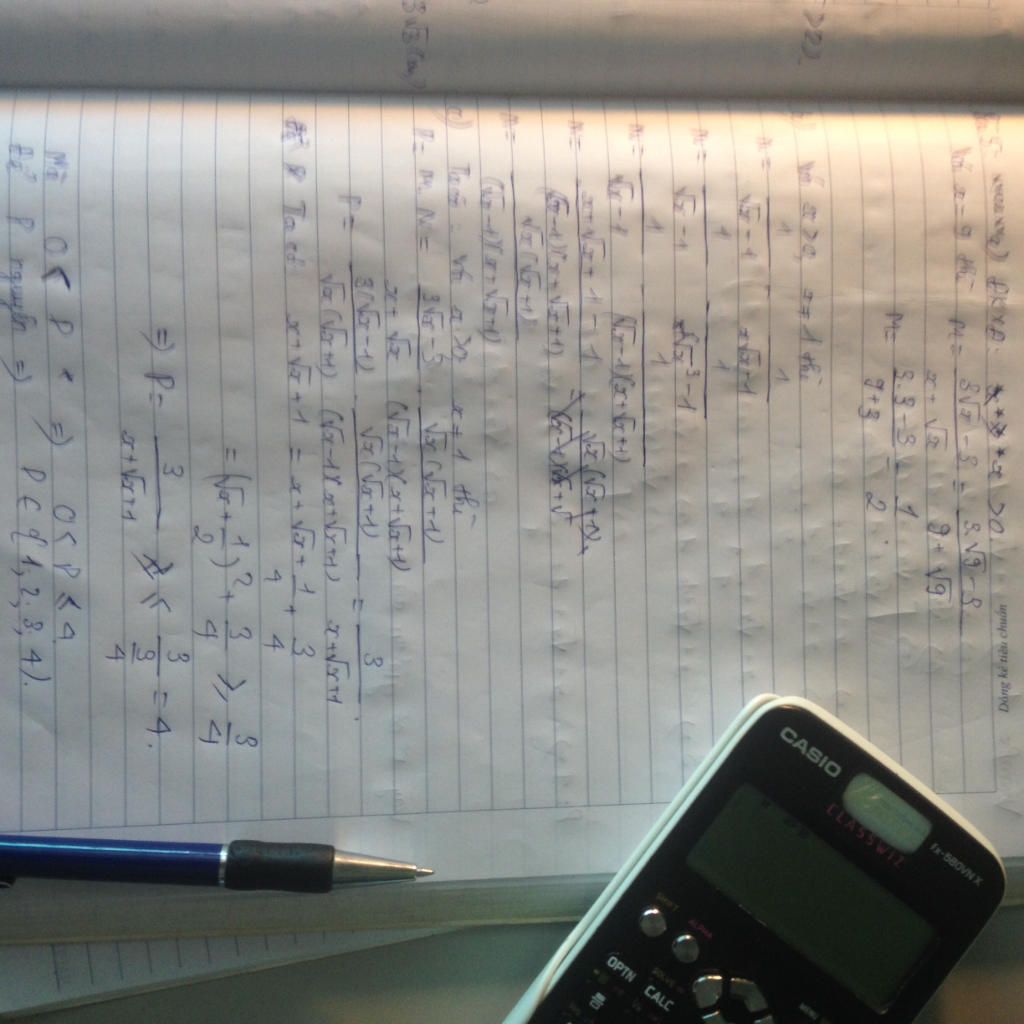 a) ĐKXĐ: x > 0
Với x = 9 thì M = (3√x - 3)/(x + √x) = (3.√9 - 3)/(9 + √9)
M = (3.3 - 3)/(9 + 3) = 1/2.
b) Với x > 0, x ≠ 1 thì
N = 1/(√x - 1) - 1/(x√x - 1)
N = 1/(√x - 1) - 1/(√x³ - 1)
N = 1/(√x - 1) - 1/((√x - 1)(x + √x + 1))
N = (x + √x + 1 - 1)/((√x - 1)(x + √x + 1))
N = √x(√x + 1)/((√x - 1)(x + √x + 1))
c) Với x > 0 x ≠ 1 thì
P = M. N = (3√x - 3)/(x + √x) . √x(√x + 1)/((√x - 1)(x + √x + 1))
P = 3(√x - 1)/(√x(√x + 1)) . √x(√x + 1)/((√x - 1)(x + √x + 1)) = 3/(x + √x + 1).
Ta có: x + √x + 1 = x + √x + 1/4 + 3/4
= (√x + 1/2)² + 3/4 ⩾ 3/4
=> P = 3/(x + √x + 1) ⩽ 3/(3/4) = 4.
Mà 0 < P => 0 < P ⩽ 4
Để P nguyên => P ∈ {1, 2, 3, 4}.
Dòng kẻ tiêu chuẩn
3√3 (cm)
CASIO
CLASSWIZ
fx-580VN X
SHIFT
ALPHA
MENU
OPTN
CALC
SOLVE